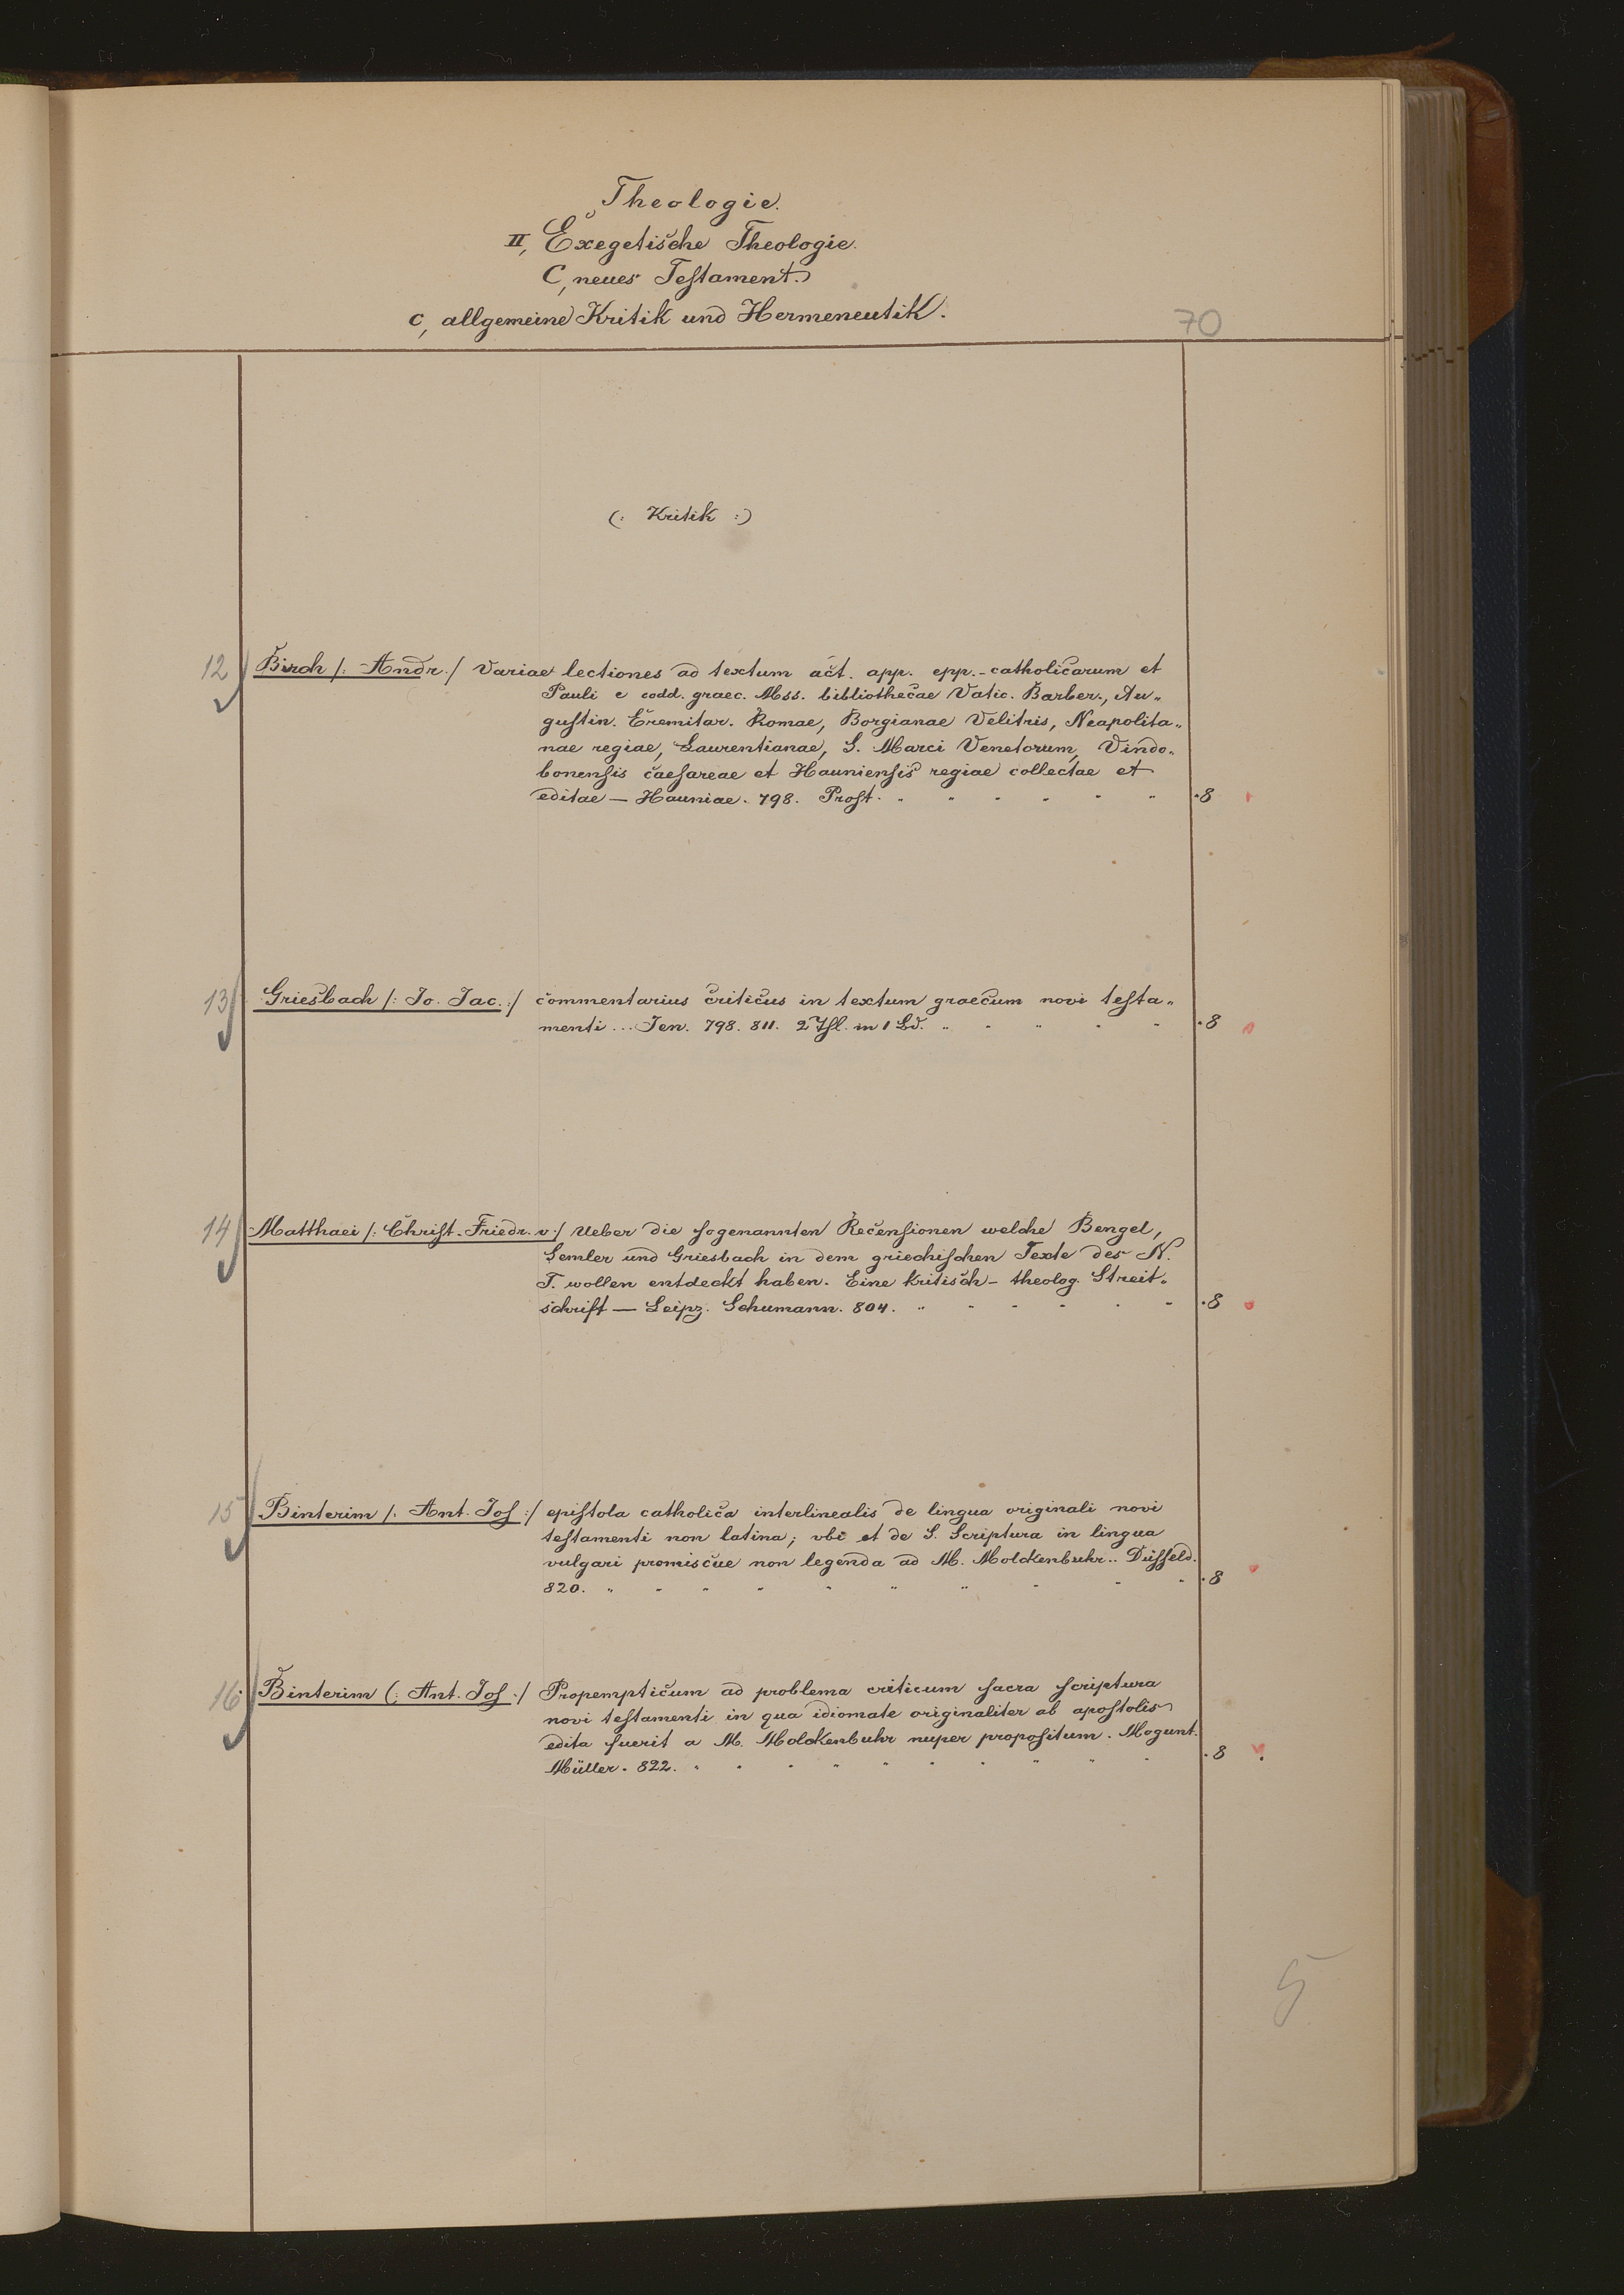 Theologie.
II, Exegetische Theologie.
C, neues Testament.
c, allgemeine Kritik und Hermeneutik.
70
(: Kritik :)
12 Birch /: Andr. / Variae lectiones ad textum act. app. epp. catholicarum et
Pauli e codd. graec. Mss. bibliothecae Vatic. Barber., Au„
gustin. Eremitar. Romae, Borgianae Velitris, Neapolita„
nae regiae, Laurentianae, S. Marci Venetorum, Vindo„
bonensis caesareae et Hauniensis regiae collectae et
editae — Hauniae. 798. Prost. " " " " " " .8
13 Griesbach /: Jo. Jac. :/ commentarius criticus in textum graecum novi testa„
menti ... Jen. 798. 811. 2 Thl. in 1 Bd. " " " " " .8
14 Matthaei /: Christ. Friedr. v. / Ueber die sogenannten Recensionen welche Bengel,
Semler und Griesbach in dem griechischen Texte des N.
T. wollen entdeckt haben. Eine kritisch - theolog. Streit„
schrift — Leipz. Schumann. 804. " " " " " " .8
15 Binterim /. Ant. Jos :/ epistola catholica interlinealis de lingua originali novi
testamenti non latina; vbi et de S. Scriptura in lingua
vulgari promiscue non legenda ad M. Molckenbuhr .. Düsseld.
820. " " " " " " " " " " .8
16 Binterim (: Ant. Jos :/ Propempticum ad problema criticum sacra scriptura
novi testamenti in qua idiomate originaliter ab apostolis
edita fuerit a M. Molckenbuhr nuper propositum. Mogunt.
Müller. 822. " " " " " " " " " " .8
5